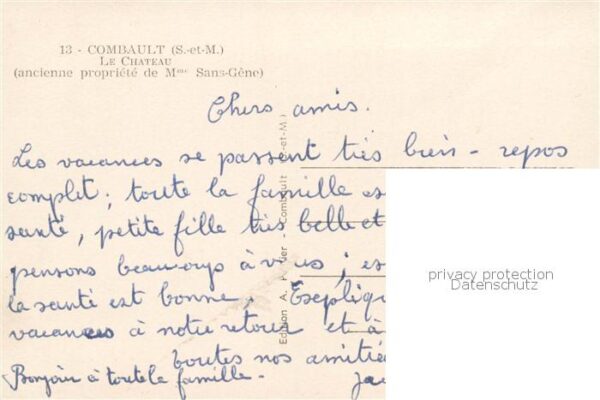 13 - COMBAULT (S.-et-M.)
LE CHATEAU
(ancienne propriété de Mme Sans-Gêne)
Chers amis.
Les vacances se passent très bien - repos
complet ; toute la famille es
santé, petite fille très belle et
pensons beaucoup à vous ; es
la santé est bonne,
vacances à notre retour et à
toutes nos amitié
Bonjour à toute la famille. -
Edition A. Combault (S.-et-M.)
privacy protection
Datenschutz